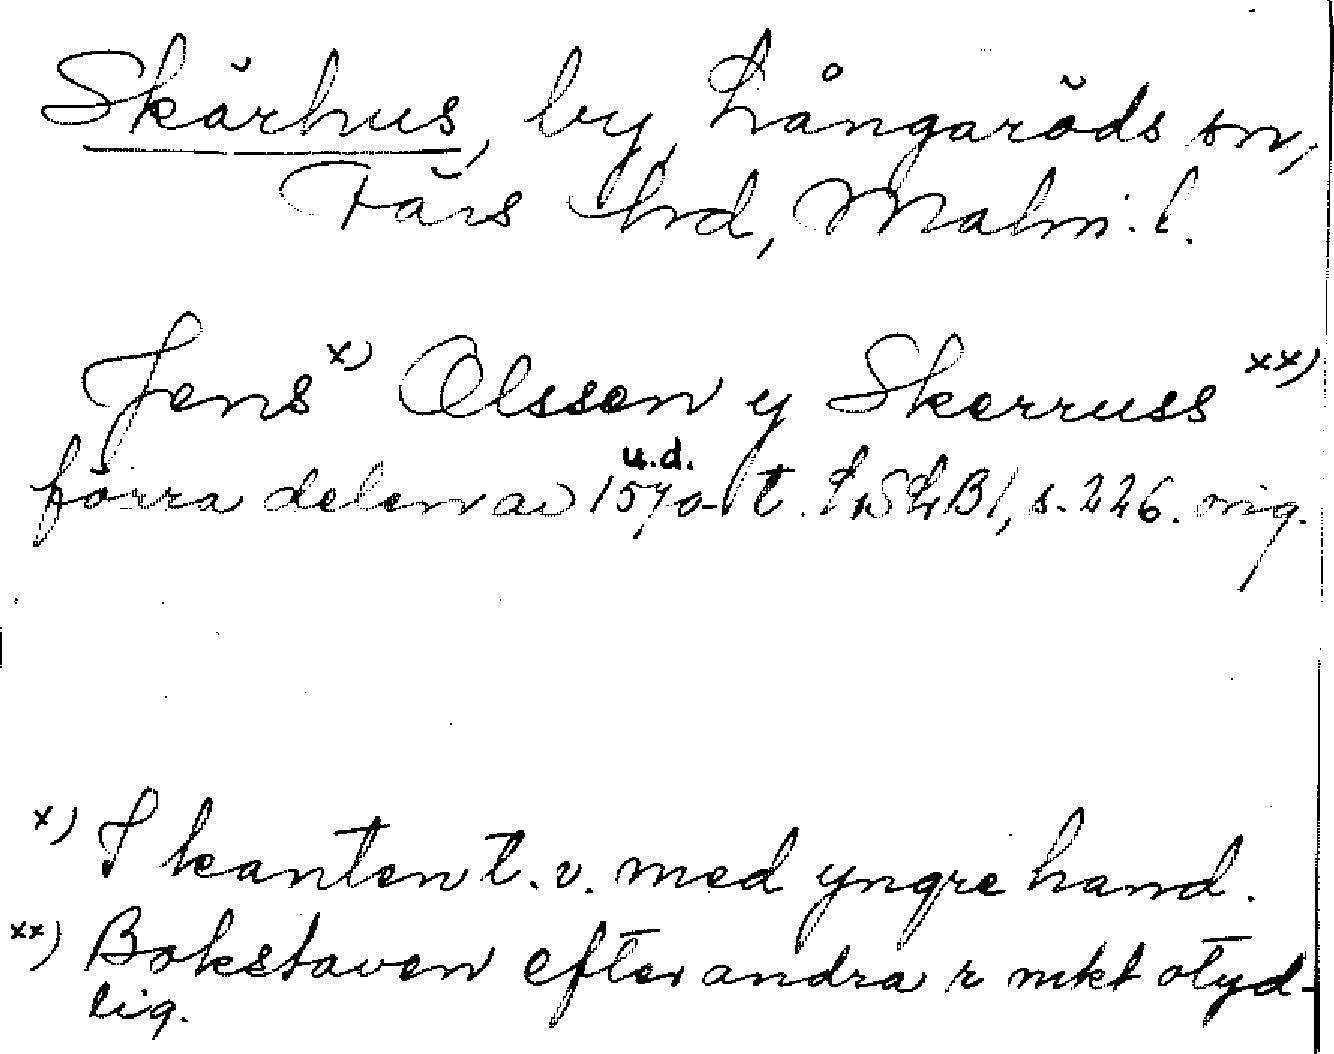 Skärhus, by, Långaröds sn,
Färs hrd, Malm. l.
Jens x) Olssen y Skerruss xx)
u.d.
förra delen av 1570-t. LSLB1, s. 226. orig.
x) I kanten t.v. med yngre hand.
xx) Bokstaven efter andra r mkt otyd-
lig.